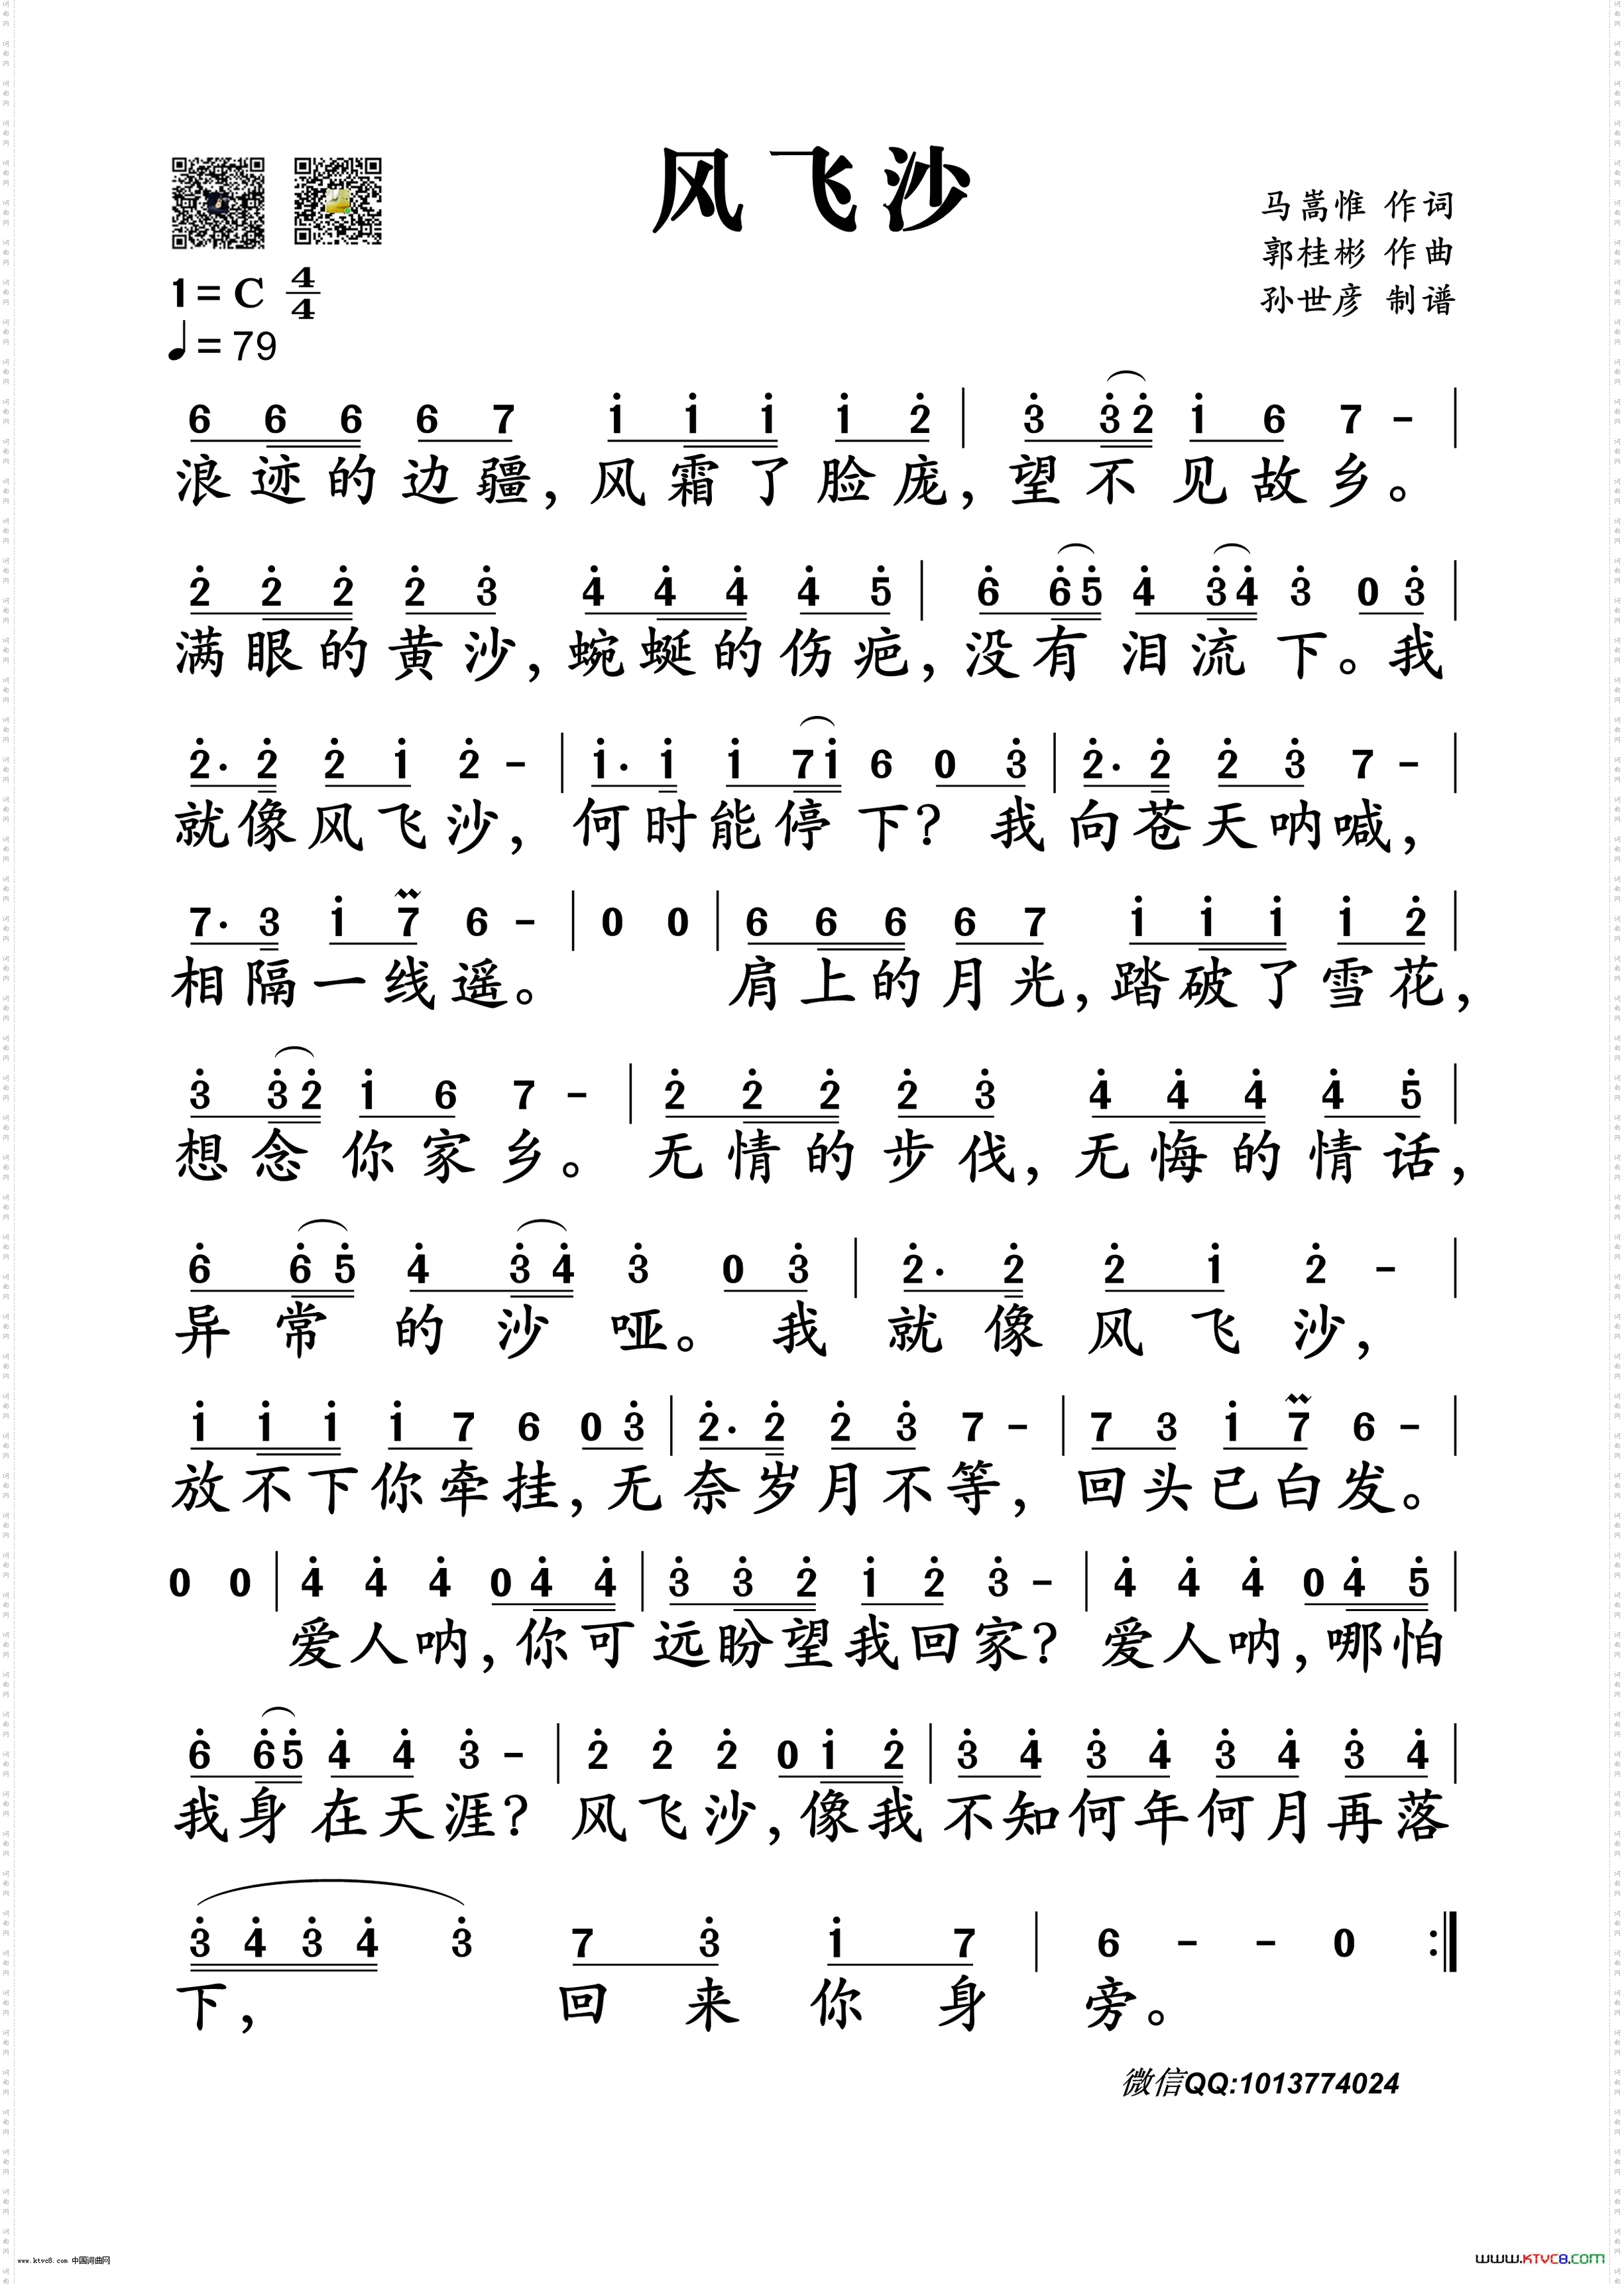 风飞沙
马嵩惟 作词
郭桂彬 作曲
孙世彦 制谱
1=C 4/4
♩=79
6 6 6 6 7 i i i i 2̇ | 3̇ 3̇ 2̇ i 6 7 - |
浪迹的边疆,风霜了脸庞,望不见故乡。
2̇ 2̇ 2̇ 2̇ 3̇ 4̇ 4̇ 4̇ 4̇ 5̇ | 6̇ 6̇ 5̇ 4̇ 3̇ 4̇ 3̇ 0 3̇ |
满眼的黄沙,蜿蜒的伤疤,没有泪流下。我
2̇· 2̇ 2̇ i 2̇ - | i· i i 7 i 6 0 3̇ | 2̇· 2̇ 2̇ 3̇ 7 - |
就像风飞沙,何时能停下?我向苍天呐喊,
7· 3 i 7 6 - | 0 0 | 6 6 6 6 7 i i i i 2̇ |
相隔一线遥。 肩上的月光,踏破了雪花,
3̇ 3̇ 2̇ i 6 7 - | 2̇ 2̇ 2̇ 2̇ 3̇ 4̇ 4̇ 4̇ 4̇ 5̇ |
想念你家乡。无情的步伐,无悔的情话,
6̇ 6̇ 5̇ 4̇ 3̇ 4̇ 3̇ 0 3̇ | 2̇· 2̇ 2̇ i 2̇ - |
异常的沙哑。我就像风飞沙,
i i i i 7 6 0 3̇ | 2̇· 2̇ 2̇ 3̇ 7 - | 7 3 i 7 6 - |
放不下你牵挂,无奈岁月不等,回头已白发。
0 0 | 4̇ 4̇ 4̇ 0 4̇ 4̇ | 3̇ 3̇ 2̇ i 2̇ 3̇ - | 4̇ 4̇ 4̇ 0 4̇ 5̇ |
爱人呐,你可远盼望我回家?爱人呐,哪怕
6̇ 6̇ 5̇ 4̇ 4̇ 3̇ - | 2̇ 2̇ 2̇ 0 i 2̇ | 3̇ 4̇ 3̇ 4̇ 3̇ 4̇ 3̇ 4̇ |
我身在天涯?风飞沙,像我不知何年何月再落
3̇ 4̇ 3̇ 4̇ 3̇ 7 3̇ i 7 | 6 - - 0 :‖
下, 回来你身旁。
微信QQ:1013774024
www.ktvc8.com 中国词曲网
WWW.KTVC8.COM